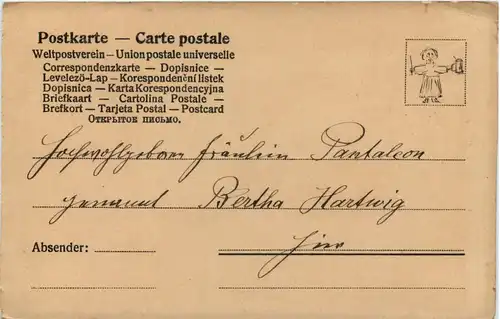 Postkarte — Carte postale
Weltpostverein — Union postale universelle
Correspondenzkarte — Dopisnice —
Levelező-Lap — Korespondenční listek
Dopisnica — Karta Korespondencyjna
Briefkaart — Cartolina Postale —
Brefkort — Tarjeta Postal — Postcard
Открытое письмо.
Hochwohlgeboren Fräulein Pantaleon
genannt Bertha Hartwig
hier
Absender: